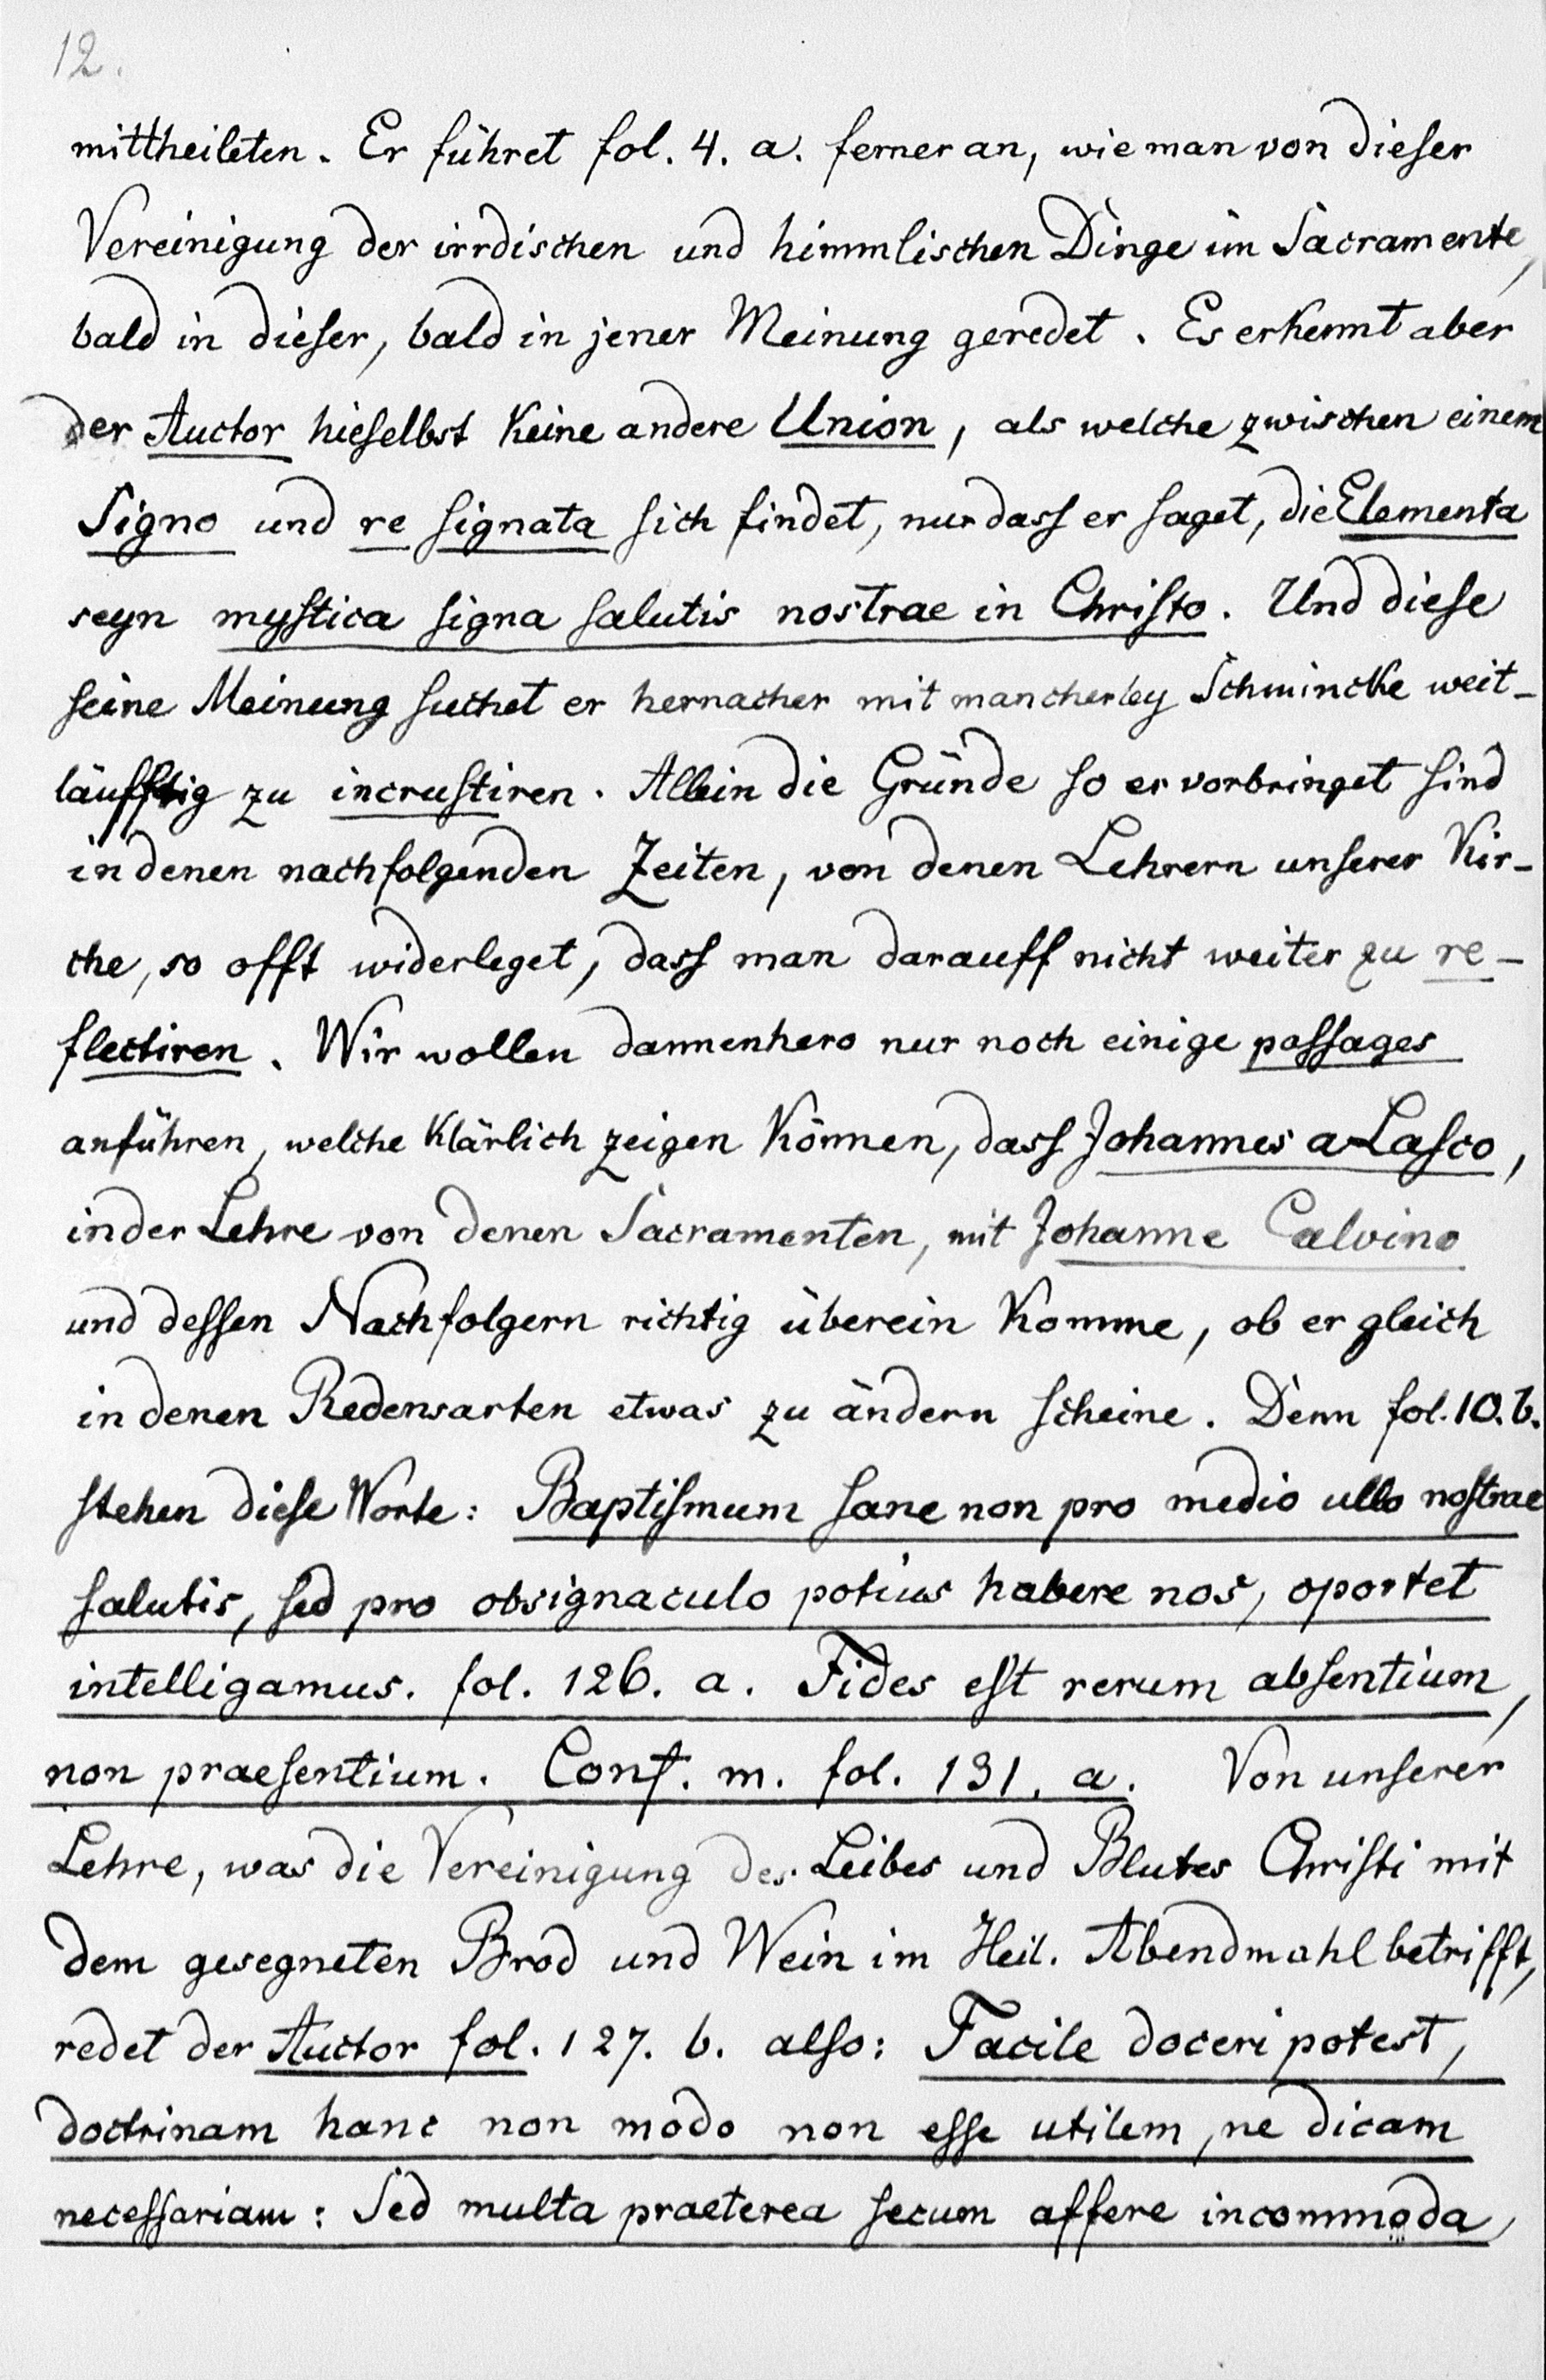 12.
mittheileten. Er führet fol. 4. a. ferner an, wie man von dieser
Vereinigung der irrdischen und himmlischen Dinge im Sacramente,
bald in dieser, bald in jener Meinung geredet. Es erkennt aber
der Auctor hieselbst keine andere Union, als welche zwischen einem
Signo und re signata sich findet, nur dass er saget, die Elementa
seyn mystica signa salutis nostrae in Christo. Und diese
seine Meinung suchet er hernacher mit mancherley Schmincke weit-
läufftig zu incrustiren. Allein die Gründe so er vorbringet sind
in denen nachfolgenden Zeiten, von denen Lehrern unserer Kir-
che, so offt widerleget, dass man darauff nicht weiter zu re-
flectiren. Wir wollen dannenhero nur noch einige passages
anführen, welche klärlich zeigen können, dass Johannes a Lasco,
in der Lehre von denen Sacramenten, mit Johanne Calvino
und dessen Nachfolgern richtig überein komme, ob er gleich
in denen Redensarten etwas zu ändern scheine. Denn fol. 10. b.
stehen diese Worte: Baptismum sane non pro medio ullo nostrae
salutis, sed pro obsignaculo potius habere nos, oportet
intelligamus. fol. 126. a. Fides est rerum absentium,
non praesentium. Conf. m. fol. 131. a. Von unserer
Lehre, was die Vereinigung des Leibes und Blutes Christi mit
dem gesegneten Brod und Wein im Heil. Abendmahl betrifft,
redet der Auctor fol. 127. b. also: Facile doceri potest,
doctrinam hanc non modo non esse utilem, ne dicam
necessariam: Sed multa praeterea secum affere incommoda,